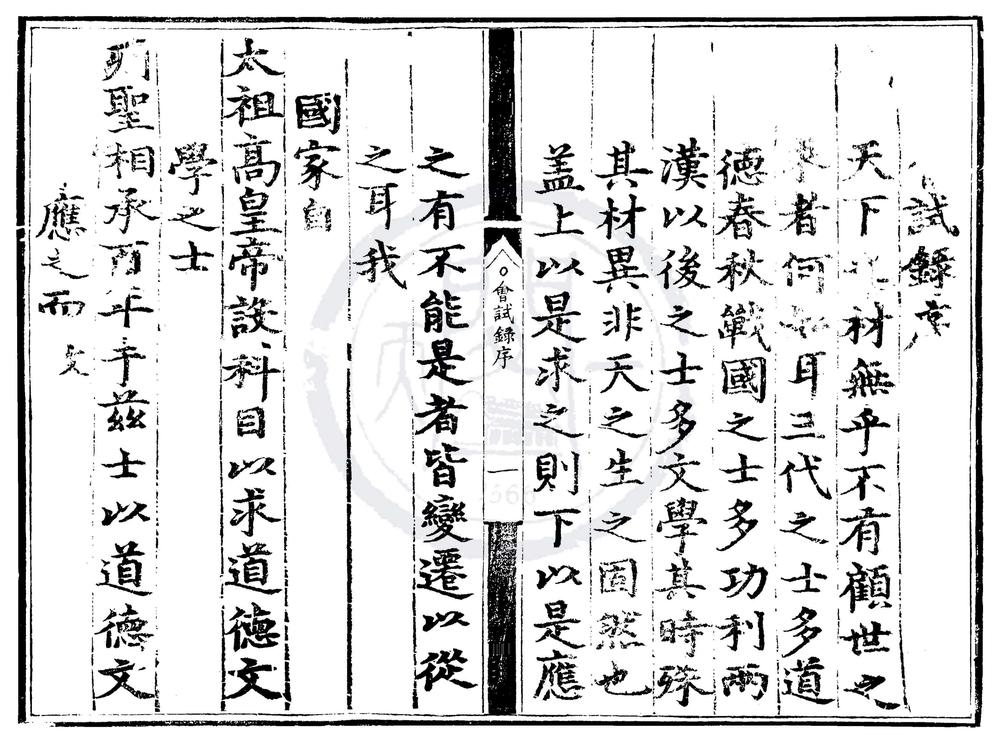 試錄序
天下之材無乎不有顧世之
者何如耳三代之士多道
德春秋戰國之士多功利兩
漢以後之士多文學其時殊
其材異非天之生之固然也
盖上以是求之則下以是應
會試錄序
一
之有不能是者皆變遷以從
之耳我
國家自
太祖高皇帝設科目以求道德文
學之士
列聖相承百年于兹士以道德文
應之而